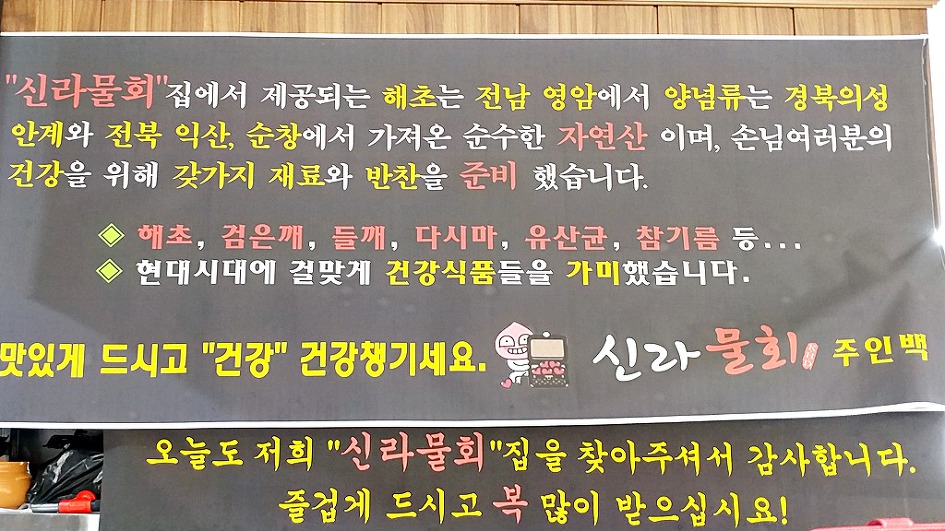 "신라물회"집에서 제공되는 해초는 전남 영암에서 양념류는 경북의성
안계와 전북 익산, 순창에서 가져온 순수한 자연산 이며, 손님여러분의
건강을 위해 갖가지 재료와 반찬을 준비 했습니다.
◈ 해초, 검은깨, 들깨, 다시마, 유산균, 참기름 등...
◈ 현대시대에 걸맞게 건강식품들을 가미했습니다.
맛있게 드시고 "건강" 건강챙기세요. 신라물회 주인백
오늘도 저희 "신라물회"집을 찾아주셔서 감사합니다.
즐겁게 드시고 복 많이 받으십시요!